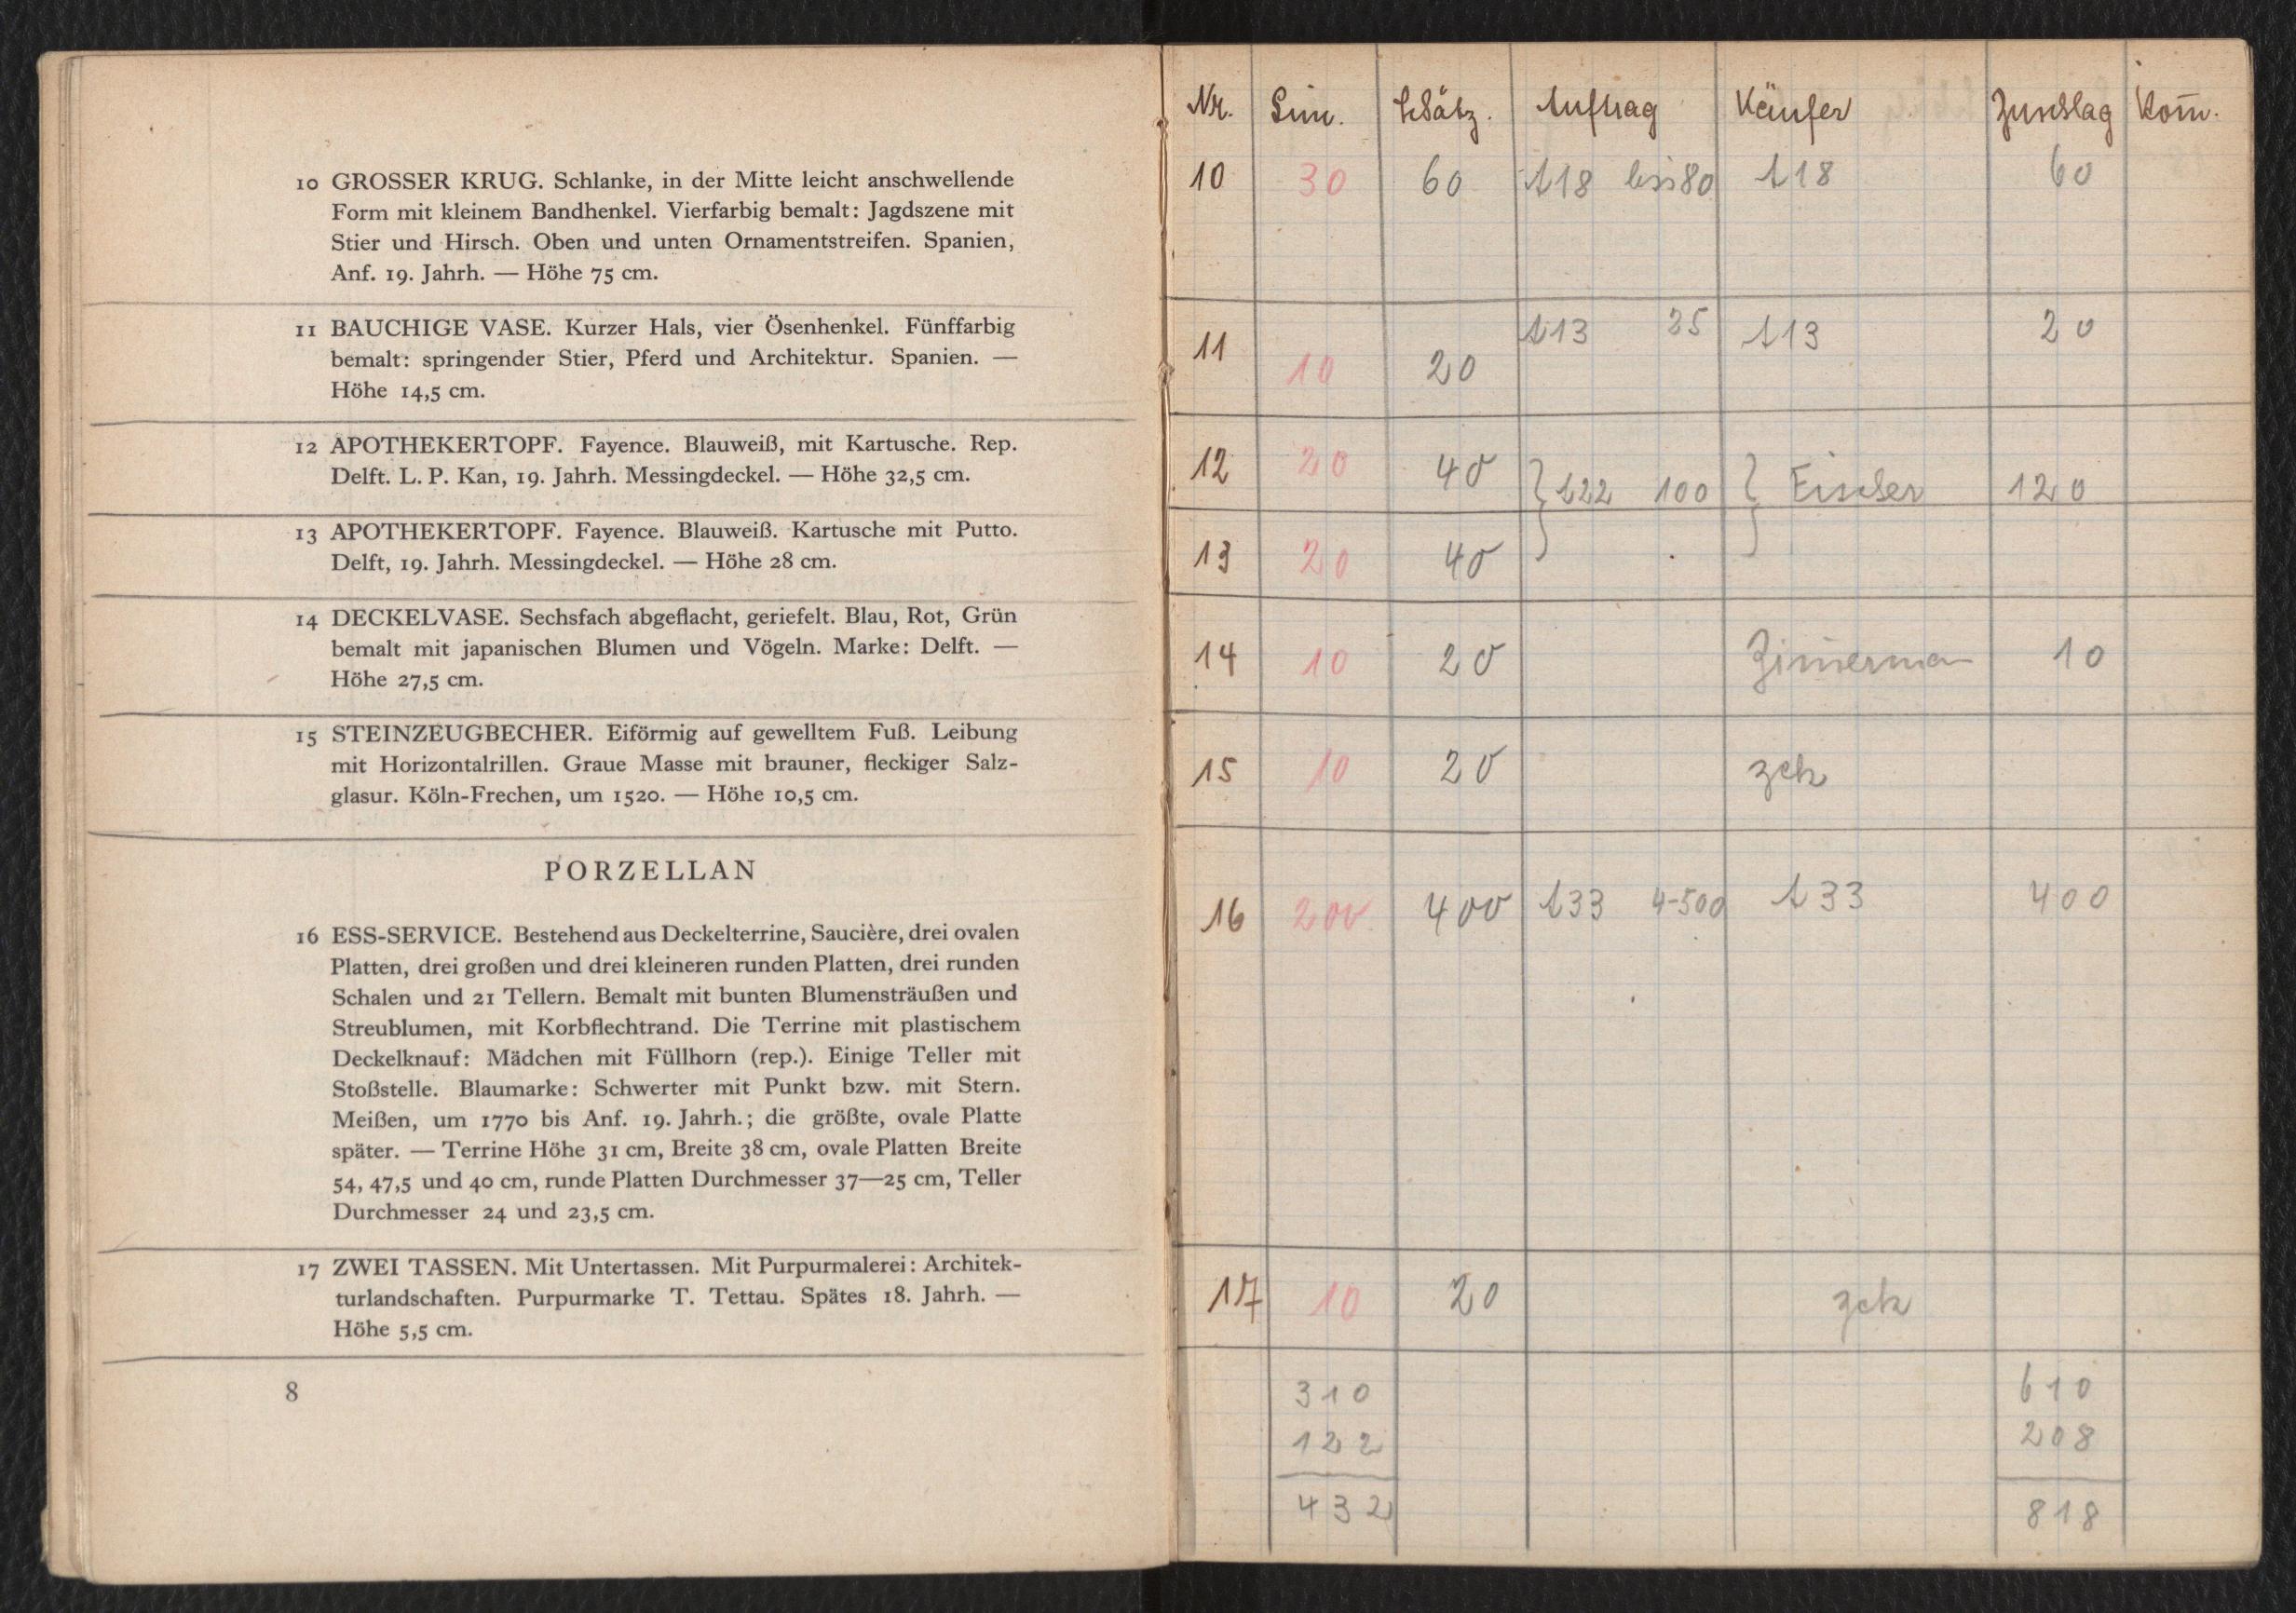 10 GROSSER KRUG. Schlanke, in der Mitte leicht anschwellende
Form mit kleinem Bandhenkel. Vierfarbig bemalt: Jagdszene mit
Stier und Hirsch. Oben und unten Ornamentstreifen. Spanien,
Anf. 19. Jahrh. — Höhe 75 cm.
11 BAUCHIGE VASE. Kurzer Hals, vier Ösenhenkel. Fünffarbig
bemalt: springender Stier, Pferd und Architektur. Spanien. —
Höhe 14,5 cm.
12 APOTHEKERTOPF. Fayence. Blauweiß, mit Kartusche. Rep.
Delft. L. P. Kan, 19. Jahrh. Messingdeckel. — Höhe 32,5 cm.
13 APOTHEKERTOPF. Fayence. Blauweiß. Kartusche mit Putto.
Delft, 19. Jahrh. Messingdeckel. — Höhe 28 cm.
14 DECKELVASE. Sechsfach abgeflacht, geriefelt. Blau, Rot, Grün
bemalt mit japanischen Blumen und Vögeln. Marke: Delft. —
Höhe 27,5 cm.
15 STEINZEUGBECHER. Eiförmig auf gewelltem Fuß. Leibung
mit Horizontalrillen. Graue Masse mit brauner, fleckiger Salz-
glasur. Köln-Frechen, um 1520. — Höhe 10,5 cm.
PORZELLAN
16 ESS-SERVICE. Bestehend aus Deckelterrine, Saucière, drei ovalen
Platten, drei großen und drei kleineren runden Platten, drei runden
Schalen und 21 Tellern. Bemalt mit bunten Blumensträußen und
Streublumen, mit Korbflechtrand. Die Terrine mit plastischem
Deckelknauf: Mädchen mit Füllhorn (rep.). Einige Teller mit
Stoßstelle. Blaumarke: Schwerter mit Punkt bzw. mit Stern.
Meißen, um 1770 bis Anf. 19. Jahrh.; die größte, ovale Platte
später. — Terrine Höhe 31 cm, Breite 38 cm, ovale Platten Breite
54, 47,5 und 40 cm, runde Platten Durchmesser 37—25 cm, Teller
Durchmesser 24 und 23,5 cm.
17 ZWEI TASSEN. Mit Untertassen. Mit Purpurmalerei: Architek-
turlandschaften. Purpurmarke T. Tettau. Spätes 18. Jahrh. —
Höhe 5,5 cm.
8
Nr. Lim. Schätz. Auftrag Käufer Zuschlag Kom̄.
10 30 60 A18 bis 80 A18 60
11 10 20 A13 25 A13 20
12 20 40 A22 100 Fischer 120
13 20 40
14 10 20 Zim̄erman 10
15 10 20 zck
16 200 400 A33 4-500 A33 400
17 10 20 zck
310 610
122 208
432 818